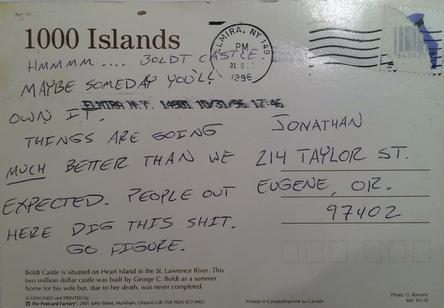 1000 Islands
ELMIRA, NY 149
PM
1996
HMMMM.... BOLDT CASTLE.
MAYBE SOMEDAY YOU'LL
OWN IT.
ELMIRA N.Y. 14901 10/31/96 17:46
THINGS ARE GOING
MUCH BETTER THAN WE
EXPECTED. PEOPLE OUT
HERE DIG THIS SHIT.
GO FIGURE.
JONATHAN
214 TAYLOR ST.
EUGENE, OR.
97402
Boldt Castle is situated on Heart Island in the St. Lawrence River. This
two million dollar castle was built by George C. Boldt as a summer
home for his wife but, due to her death, was never completed.
© DESIGNED and PRINTED by
The Postcard Factory
Markham, Ontario
Printed in Canada/Imprimé au Canada
Photo: G. Romany